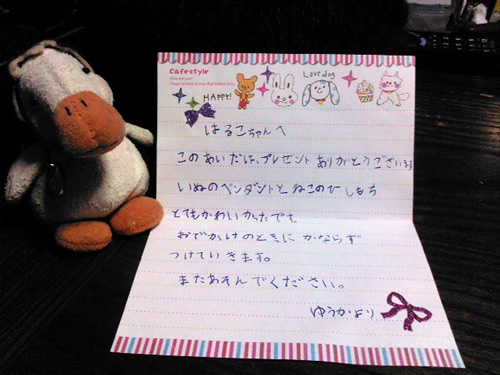 Cafe style
HAPPY!
Love dog
はるこちゃんへ
このあいだは、プレゼント ありがとうございます
いぬのペンダントと ねこの
とてもかわいかったです。
おでかけのときに かならず
つけていきます。
またあそんでください。
ゆうかより